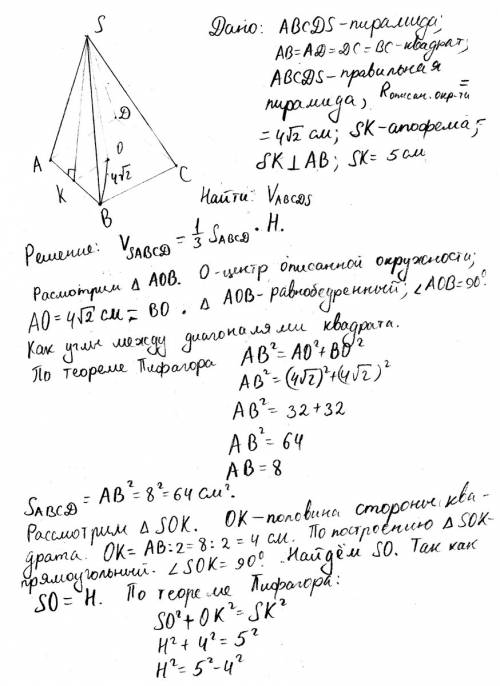 S
Дано: ABCDS-пирамида;
AB=AD=DC=BC-квадрат;
ABCDS-правильная
пирамида, Rописан. окр-ти =
= 4√2 см; SK-апофема;
SK⊥AB; SK=5 см
D
O
A
K
4√2
C
B
Найти: VABCDS
Решение: VSABCD = 1/3 SABCD · H.
Расмотрим △ AOB. O-центр описанной окружности;
AO=4√2 см = BO. △ AOB-равнобедренный; ∠AOB=90°.
Как углы между диагоналями квадрата.
По теореме Пифагора AB²=AO²+BO²
AB²=(4√2)²+(4√2)²
AB²=32+32
AB²=64
AB=8
SABCD = AB²=8²=64 см².
Рассмотрим △ SOK. OK-половина стороны ква-
драта. OK=AB:2=8:2=4 см. По построению △ SOK-
прямоугольный. ∠SOK=90°. Найдём SO. Так как
SO=H. По теореме Пифагора:
SO²+OK²=SK²
H²+4²=5²
H²=5²-4²